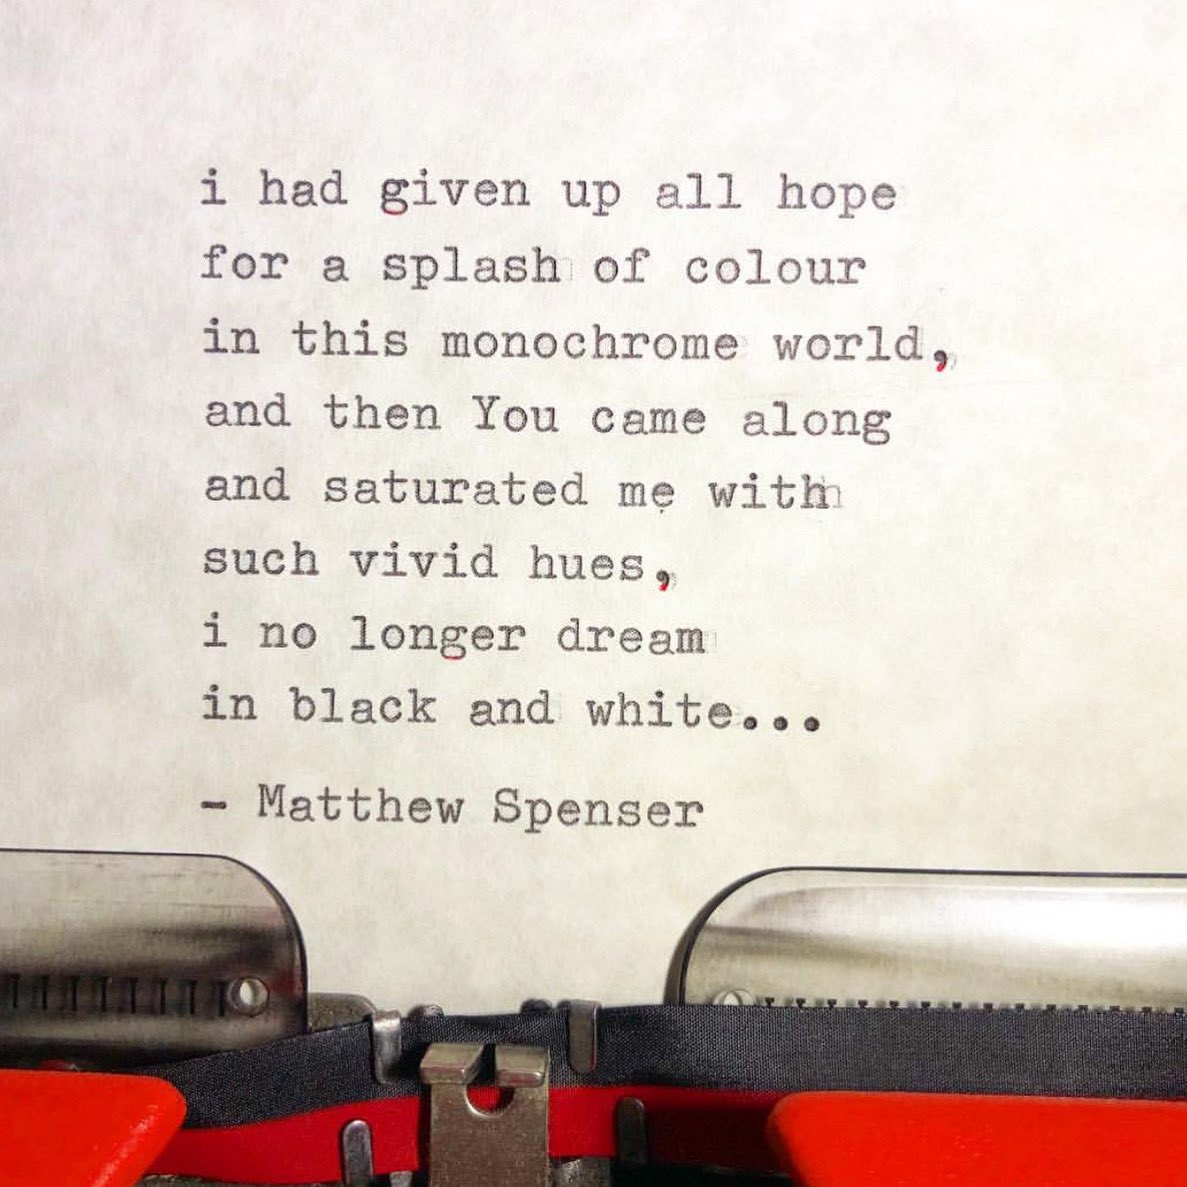 i had given up all hope
for a splash of colour
in this monochrome world,
and then You came along
and saturated me with
such vivid hues,
i no longer dream
in black and white...
- Matthew Spenser